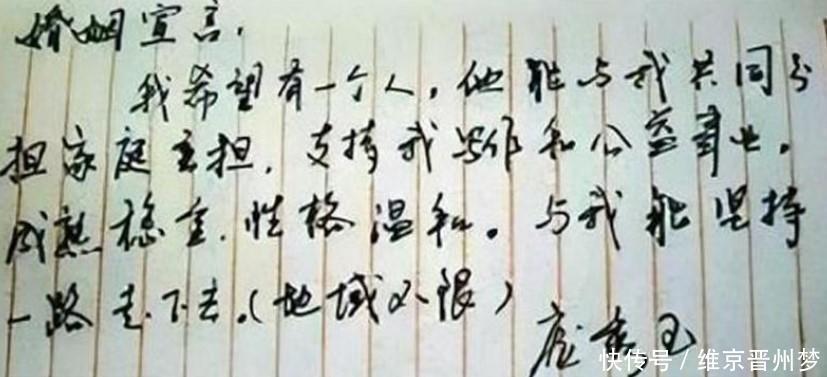 婚姻宣言.
我希望有一个人,他能与我共同分
担家庭重担.支持我写作和公益事业.
成熟稳重.性格温和。与我能坚持
一路走下去.(地域不限)
庞秀玉
快传号 / 维京晋州梦